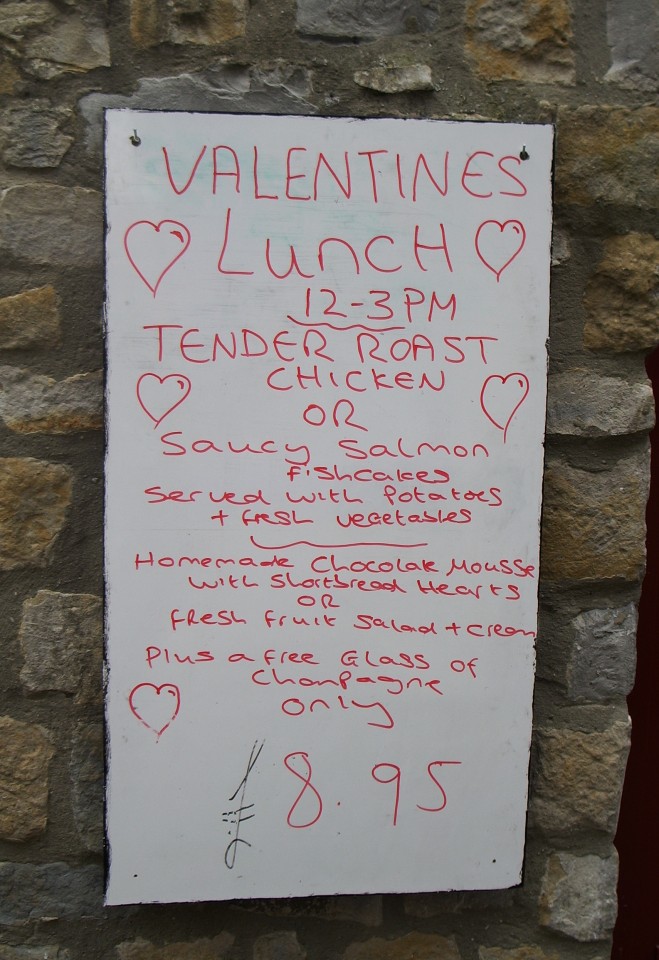 VALENTINES
Lunch
12-3PM
TENDER ROAST
CHICKEN
OR
Saucy Salmon
fishcakes
Served with Potatoes
+ fresh vegetables
Homemade Chocolate Mousse
with Shortbread Hearts
OR
fresh fruit Salad + Cream
Plus a free Glass of
Champagne
only
£8.95